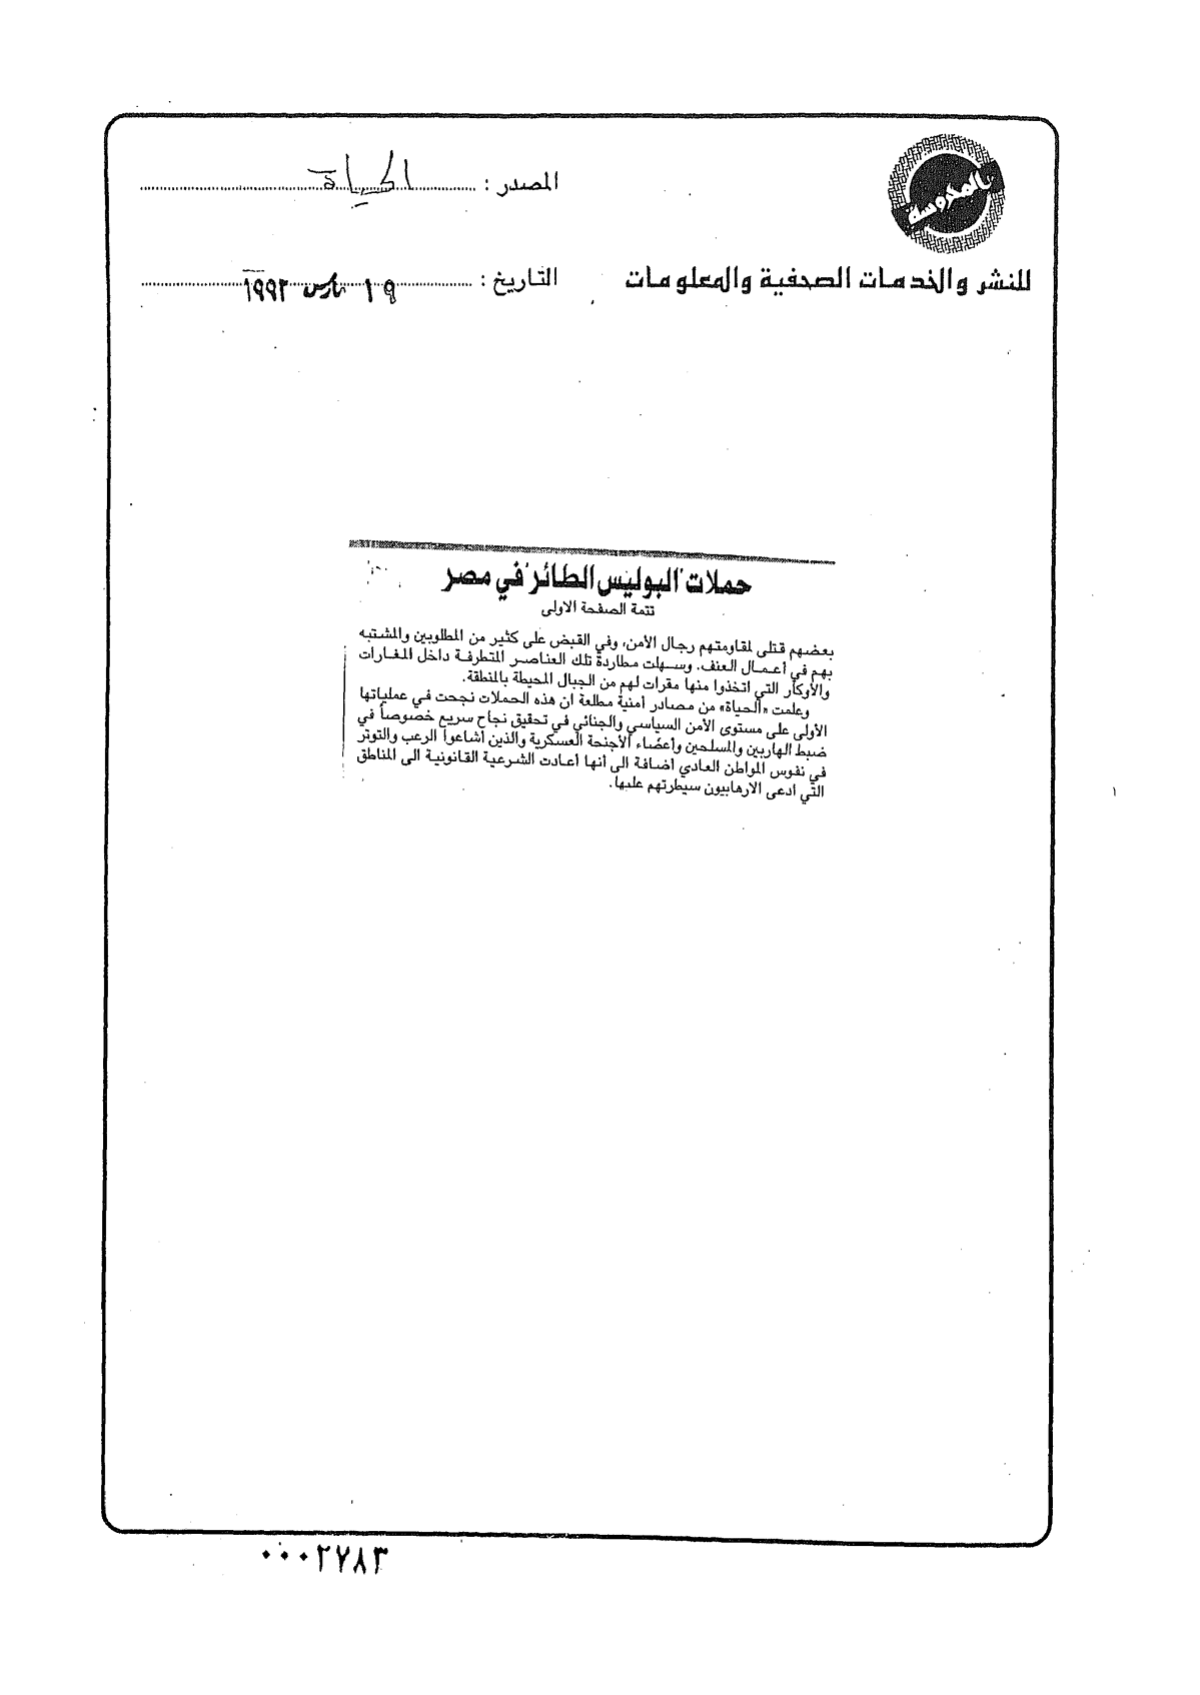 بالمحروسة
للنشر والخدمات الصحفية والمعلومات
المصدر : الحياة
التاريخ : ١٩ مارس ١٩٩٢
حملات "البوليس الطائر" في مصر
تتمة الصفحة الاولى
بعضهم قتلى لمقاومتهم رجال الأمن، وفي القبض على كثير من المطلوبين والمشتبه
بهم في أعمال العنف. وسهلت مطاردة تلك العناصر المتطرفة داخل المغارات
والأوكار التي اتخذوا منها مقرات لهم من الجبال المحيطة بالمنطقة.
وعلمت «الحياة» من مصادر أمنية مطلعة ان هذه الحملات نجحت في عملياتها
الأولى على مستوى الأمن السياسي والجنائي في تحقيق نجاح سريع خصوصاً في
ضبط الهاربين والمسلحين وأعضاء الأجنحة العسكرية والذين أشاعوا الرعب والتوتر
في نفوس المواطن العادي اضافة الى أنها أعادت الشرعية القانونية الى المناطق
التي ادعى الارهابيون سيطرتهم عليها.
٠٠٠٢٧٨٣